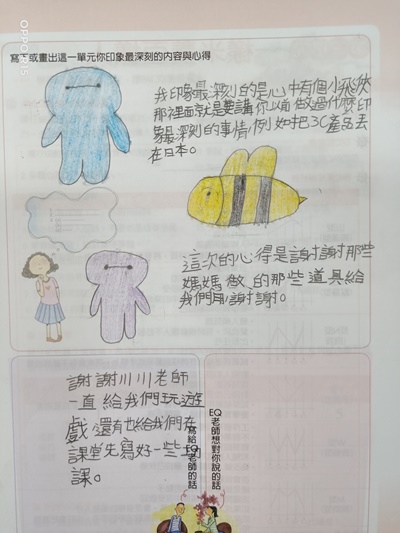 寫下或畫出這一單元你印象最深刻的內容與心得
我印象最深刻的是心中有個小飛俠
那裡面就是要講你以前做過什麼印
象最深刻的事情,例如把3C產品丟
在日本。
這次的心得是謝謝那些
媽媽做的那些道具給
我們用謝謝。
謝謝川川老師
一直給我們玩遊
戲還有也給我們在
課堂先寫好一些功
課。
EQ老師想對你說的話
寫給EQ老師的話
OPPO R15